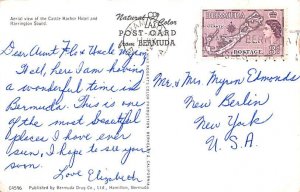 Aerial view of the Castle Harbor Hotel and
Harrington Sound.
Natural Color
POST-CARD
from BERMUDA
BERMUDA
POSTAGE
Dear Aunt Flo & Uncle
Well, here I am having
a wonderful time in
Bermuda. This is one
of the most beautiful
places I have ever
seen, I hope to see you
soon.
Love Elizabeth
Mr. & Mrs Myron Edmonds
New Berlin
New York
U. S. A.
C4596
Published by Bermuda Drug Co., Ltd., Hamilton, Bermuda